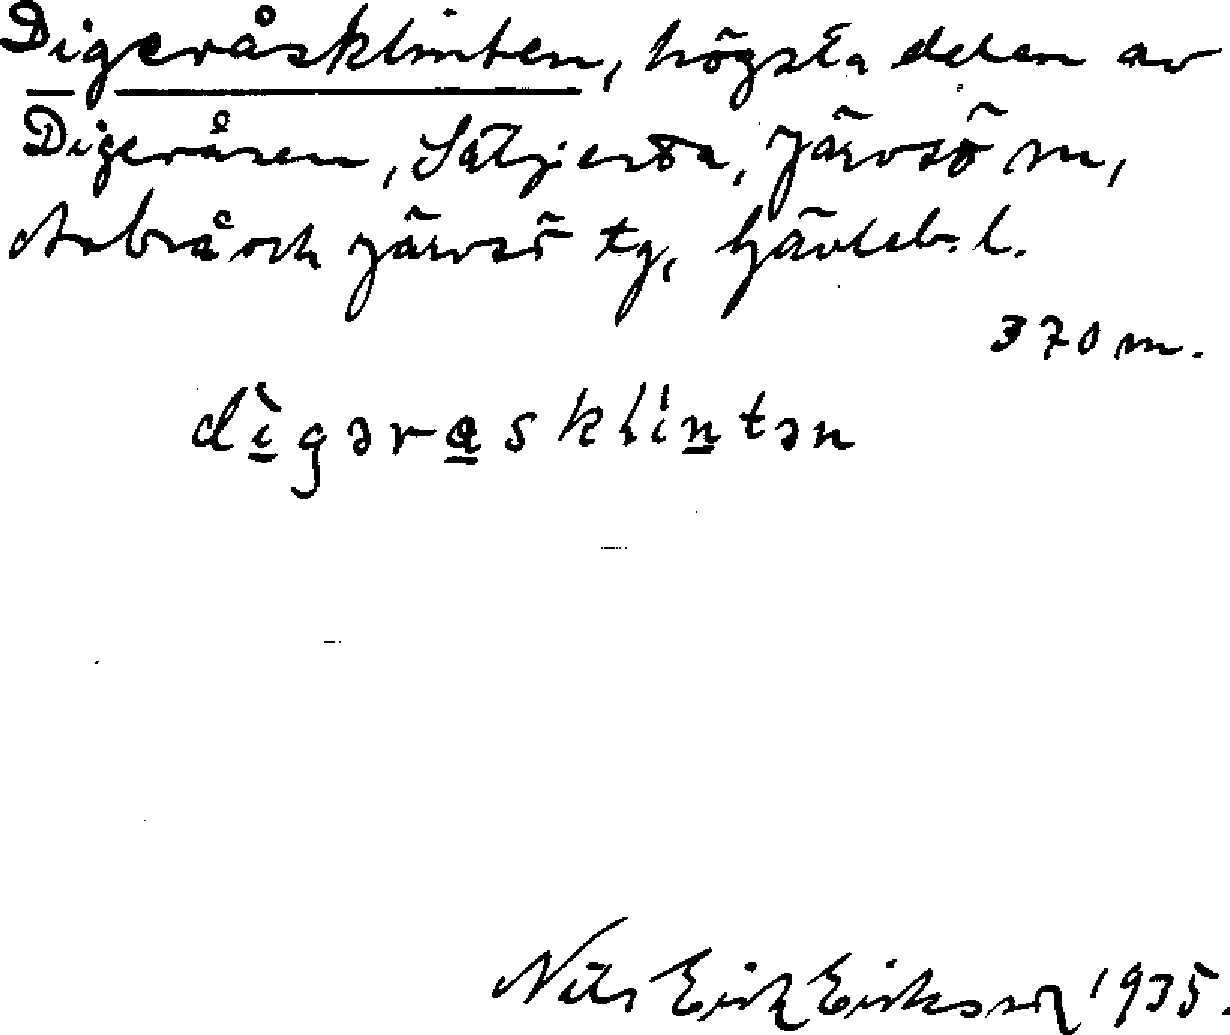 Digeråsklinten, högsta delen av
Digeråsen, Sätjesta, Järvsö sn,
Arbrå och Järvsö tg, Gävleb. l.
370 m.
dìgəra̲skliṉtən
Nils Erik Eriksson 1935.